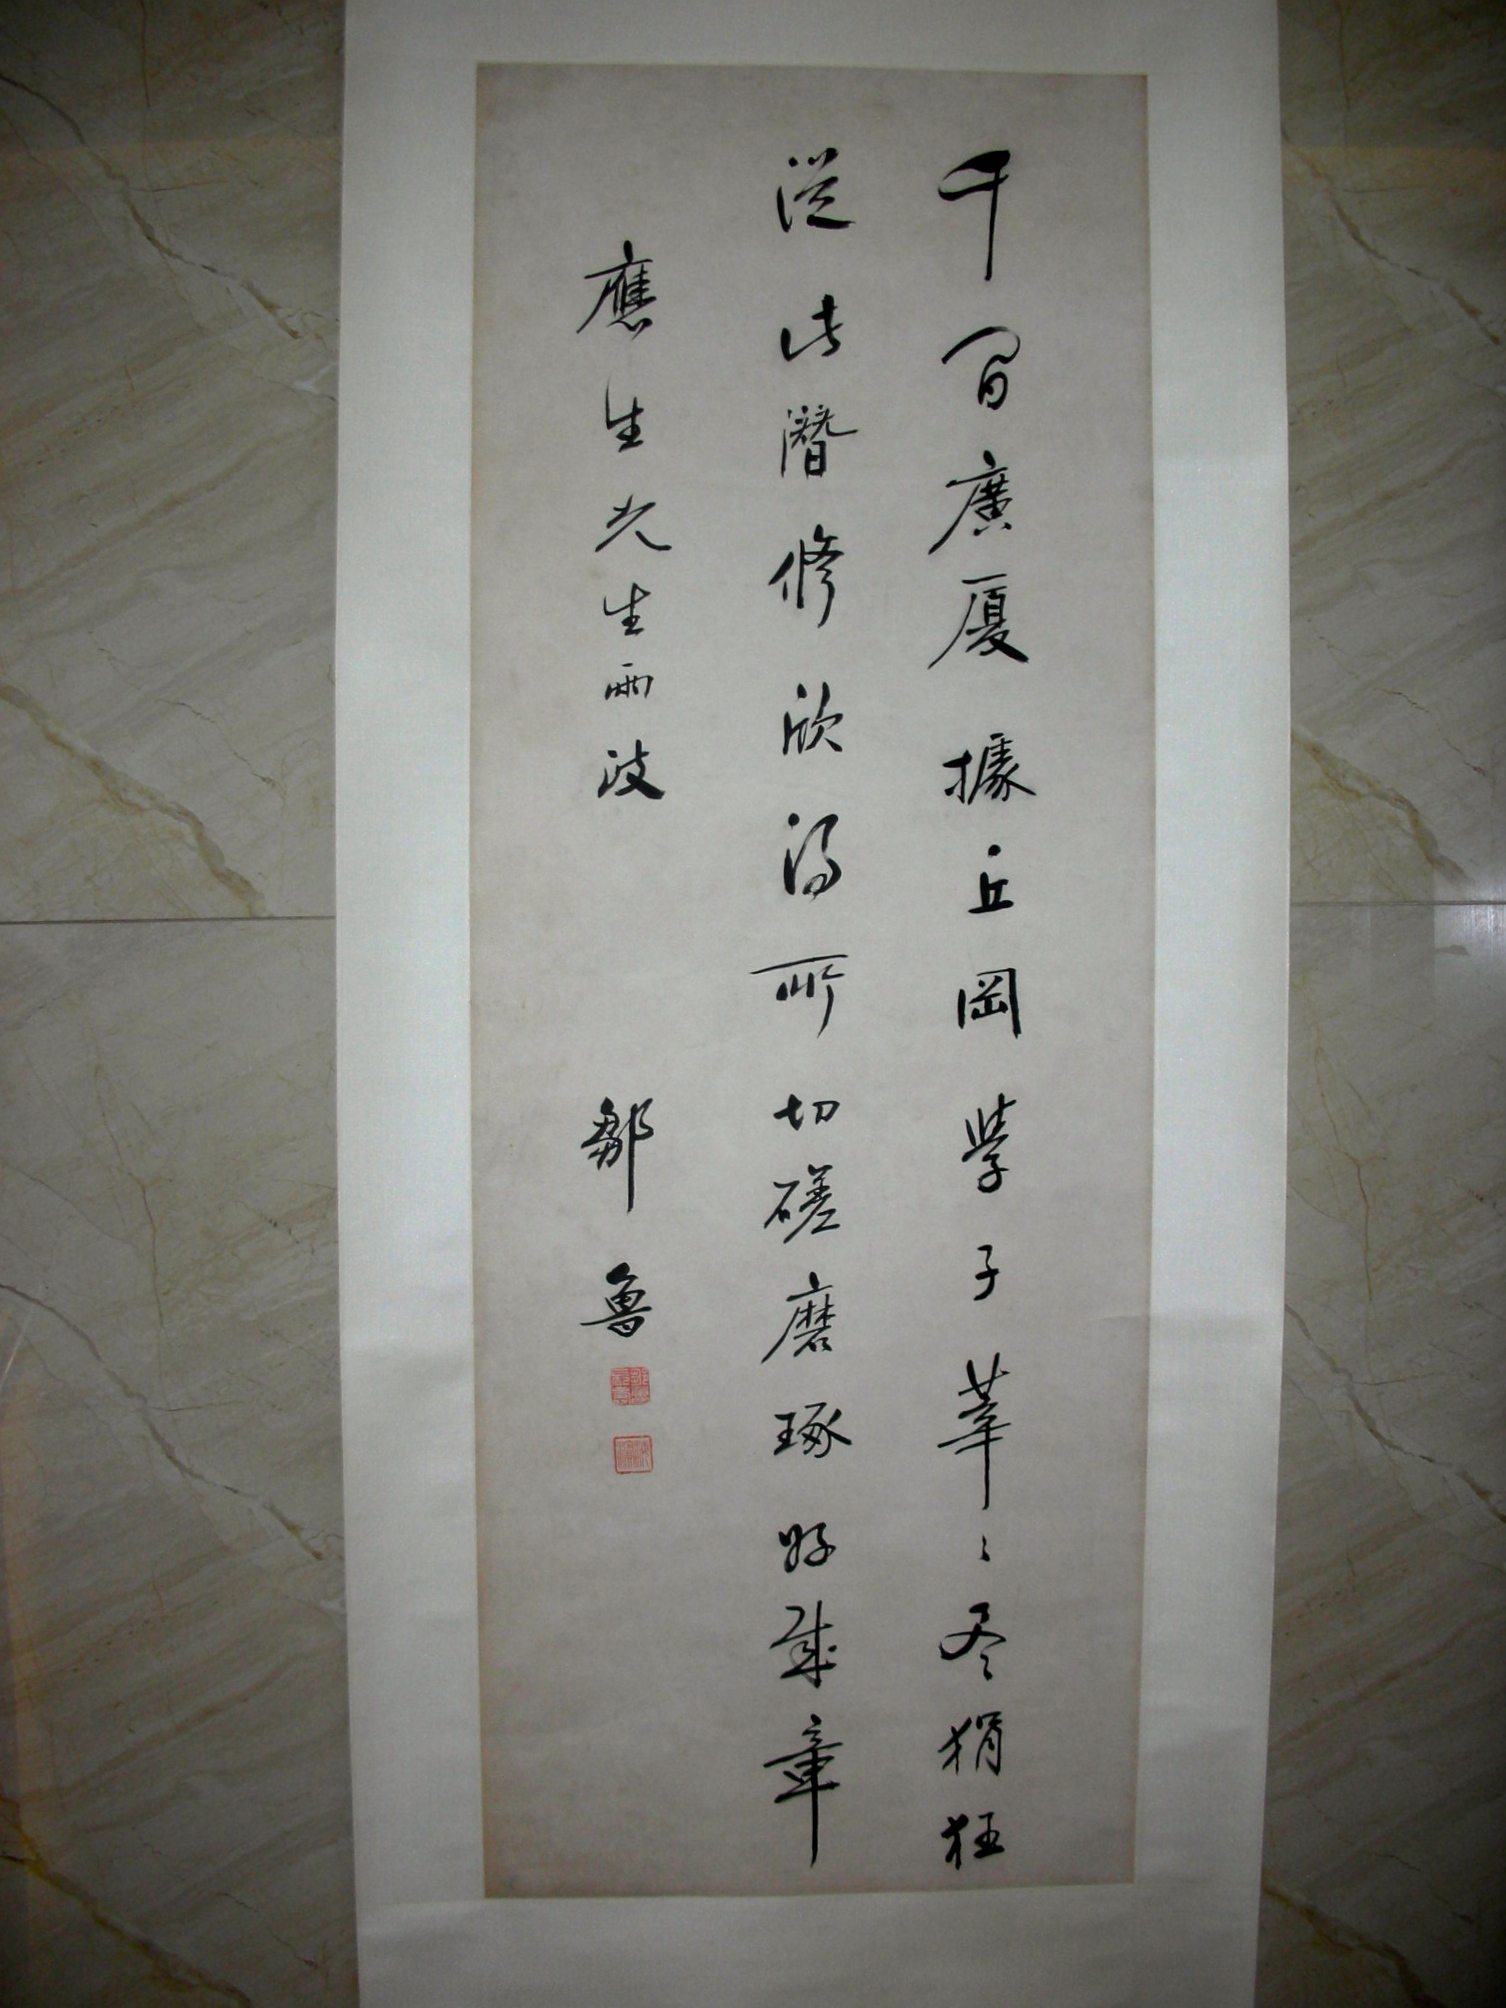 千間廣厦據丘岡學子莘〻尽狷狂
從此潛修欣得所切磋磨琢好成章
應生先生兩政
鄒魯